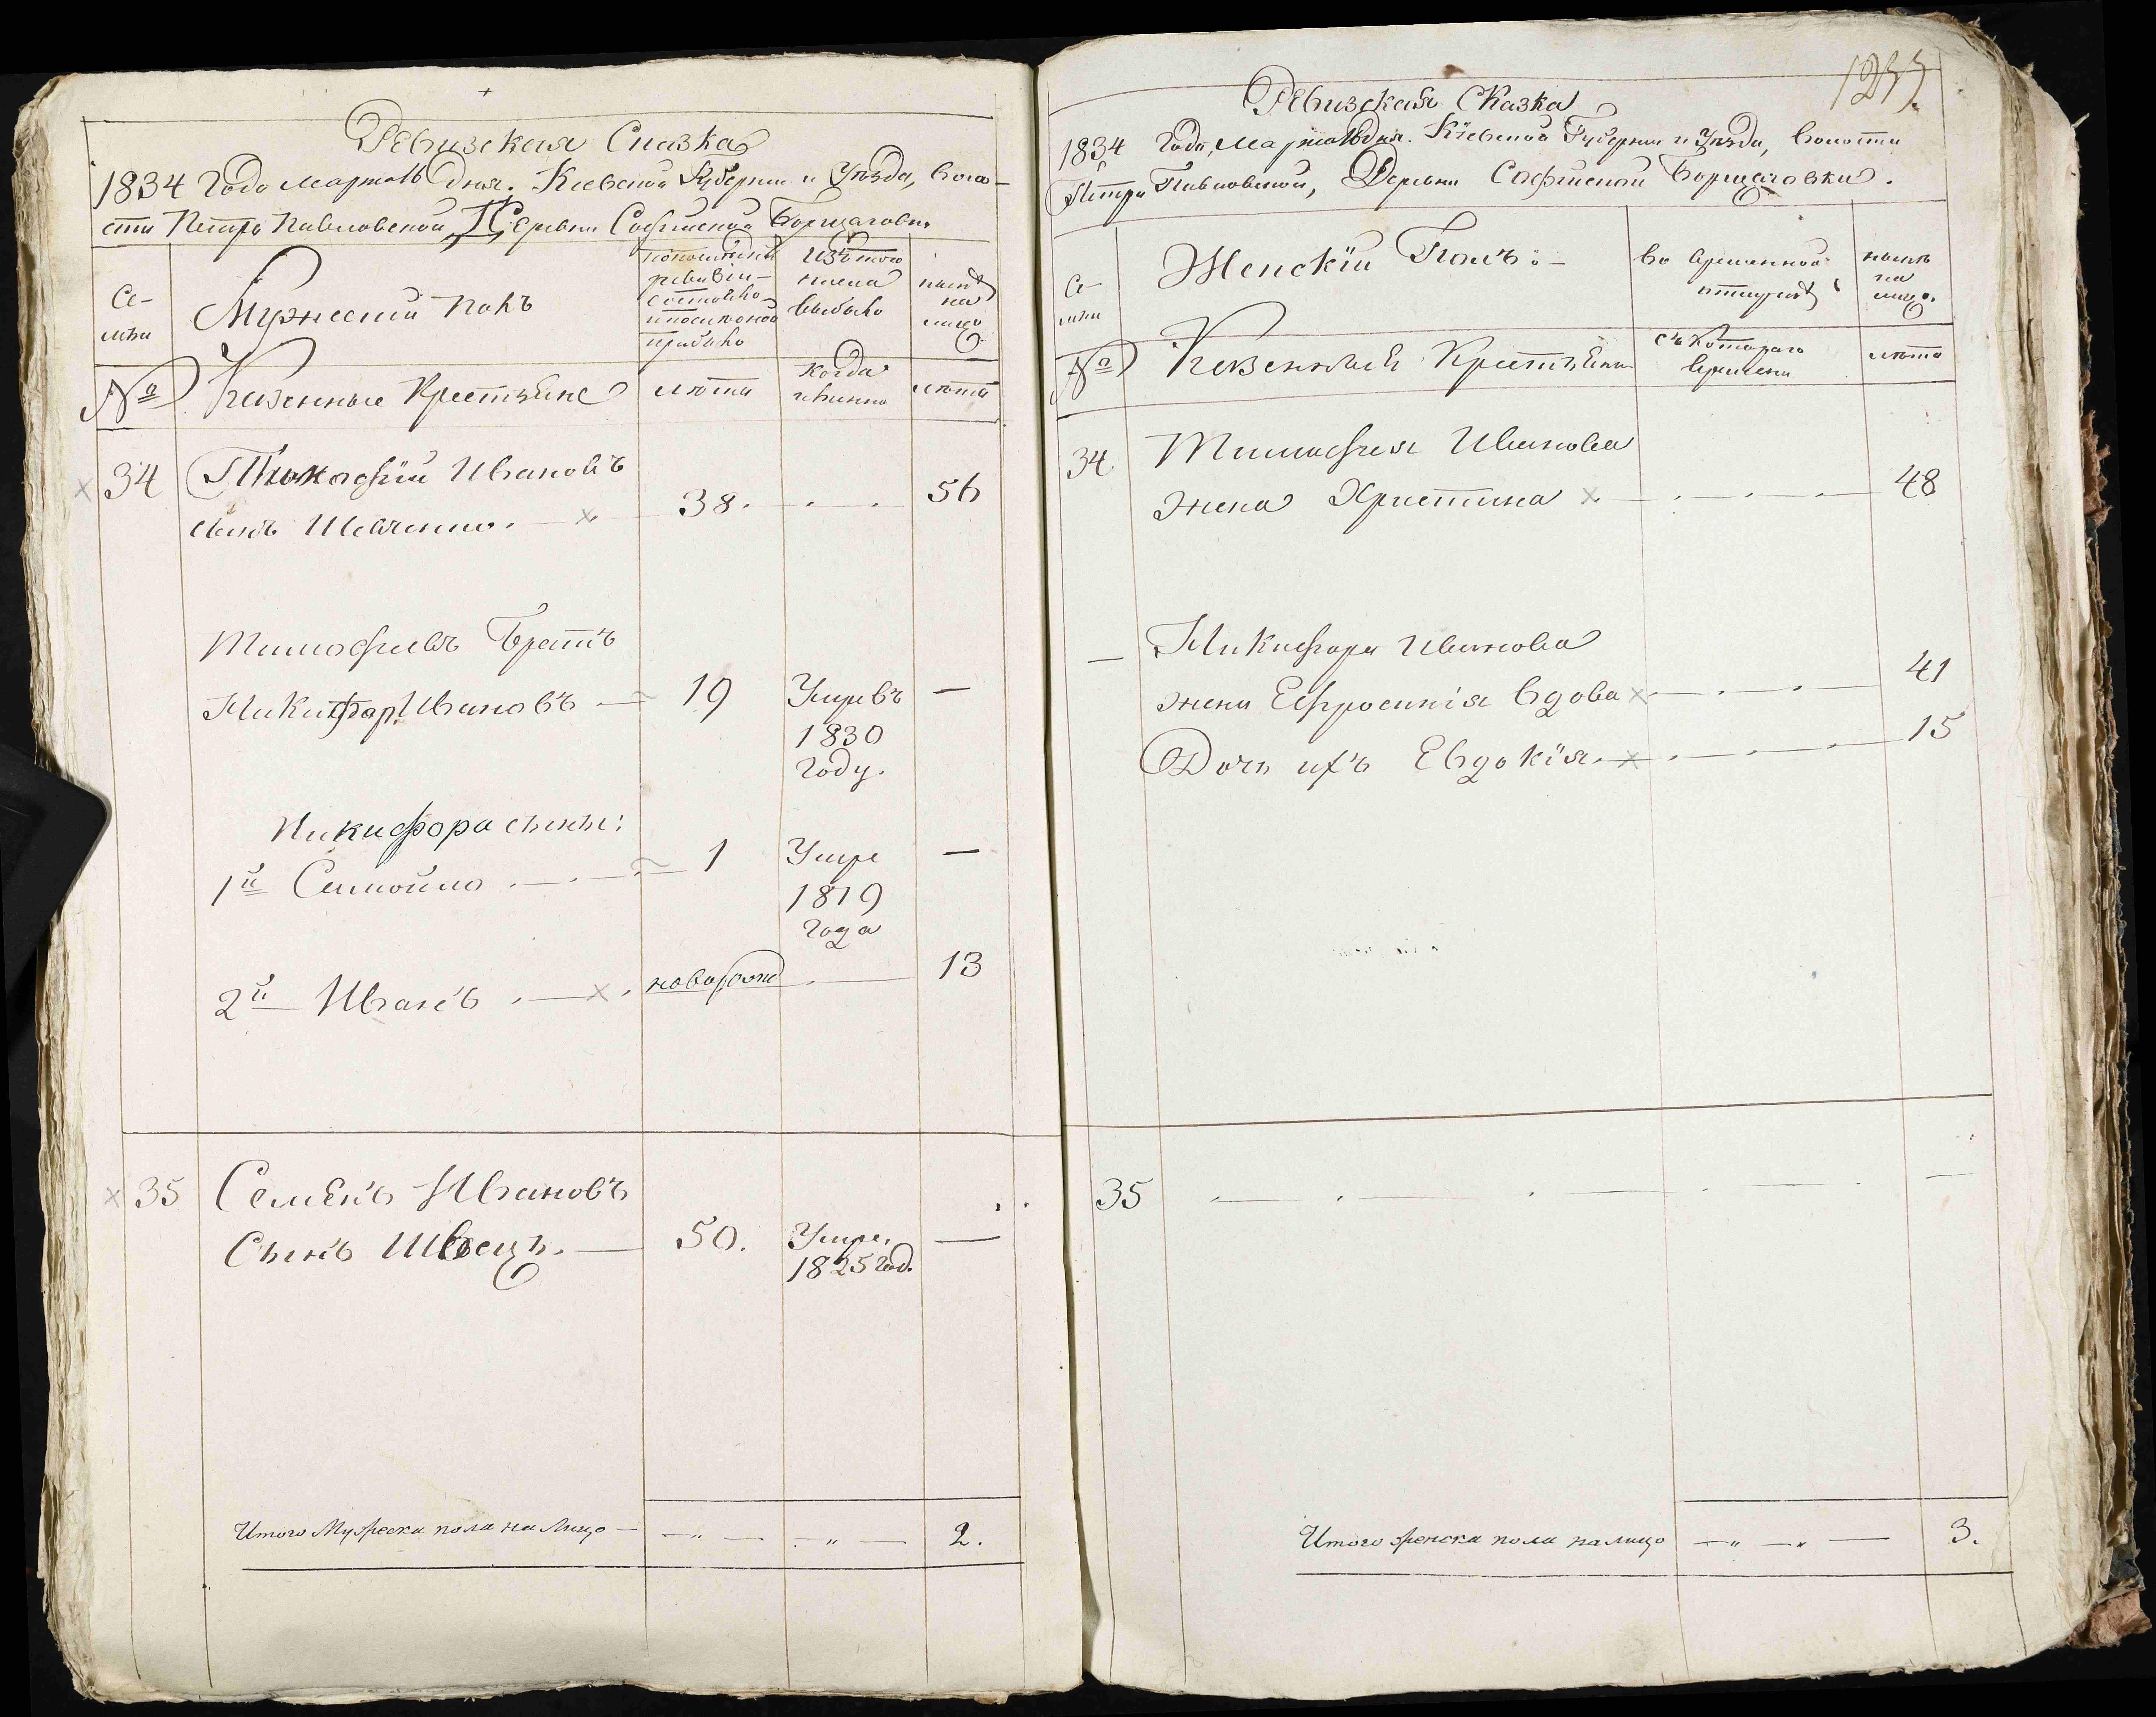 Ревизская Сказка
1834 Года Марта 16 дня. Киевской Губернии и Уезда, Воло-
сти Петро Павловской, Деревни Софиевской Борщаговки
Се-
мьи
Мужеский полъ
по последней
ревизии
состояло
и после оной
прибыло
Изъ того
числа
выбыло
ныне
на
лицо
№
Казенные Крестьяне
лета
когда
именно
лета
34
Тимофий Ивановъ
сынъ Шевченко.
38.
56
Тимофиевъ Братъ
Никифоръ Ивановъ
19
Умревъ
1830
году.
—
Никифора сыны:
1й Самойло
1
Умре
1819
года
—
2й Иванъ
новорожд
13
35
Семенъ Ивановъ
Сынъ Швецъ.
50.
Умре.
1825 год.
—
Итого Мужеска пола на лицо — 2.
1277.
Ревизская Сказка
1834 Года, Марта 16 дня. Кіевской Губернии и Уезда, Волости
Петро Павловской, Деревни Софиевской Борщаговки.
Се-
мьи
Женскій Полъ:
во временной
отлучке
ныне
на
лицо.
№
Казенные Крестьяне
съ котораго
времени
лета
34.
Тимофия Иванова
жена Христина
48
Никифора Иванова
жена Ефросинія вдова
41
Дочь ихъ Евдокія.
15
35
Итого женска пола на лицо 3.